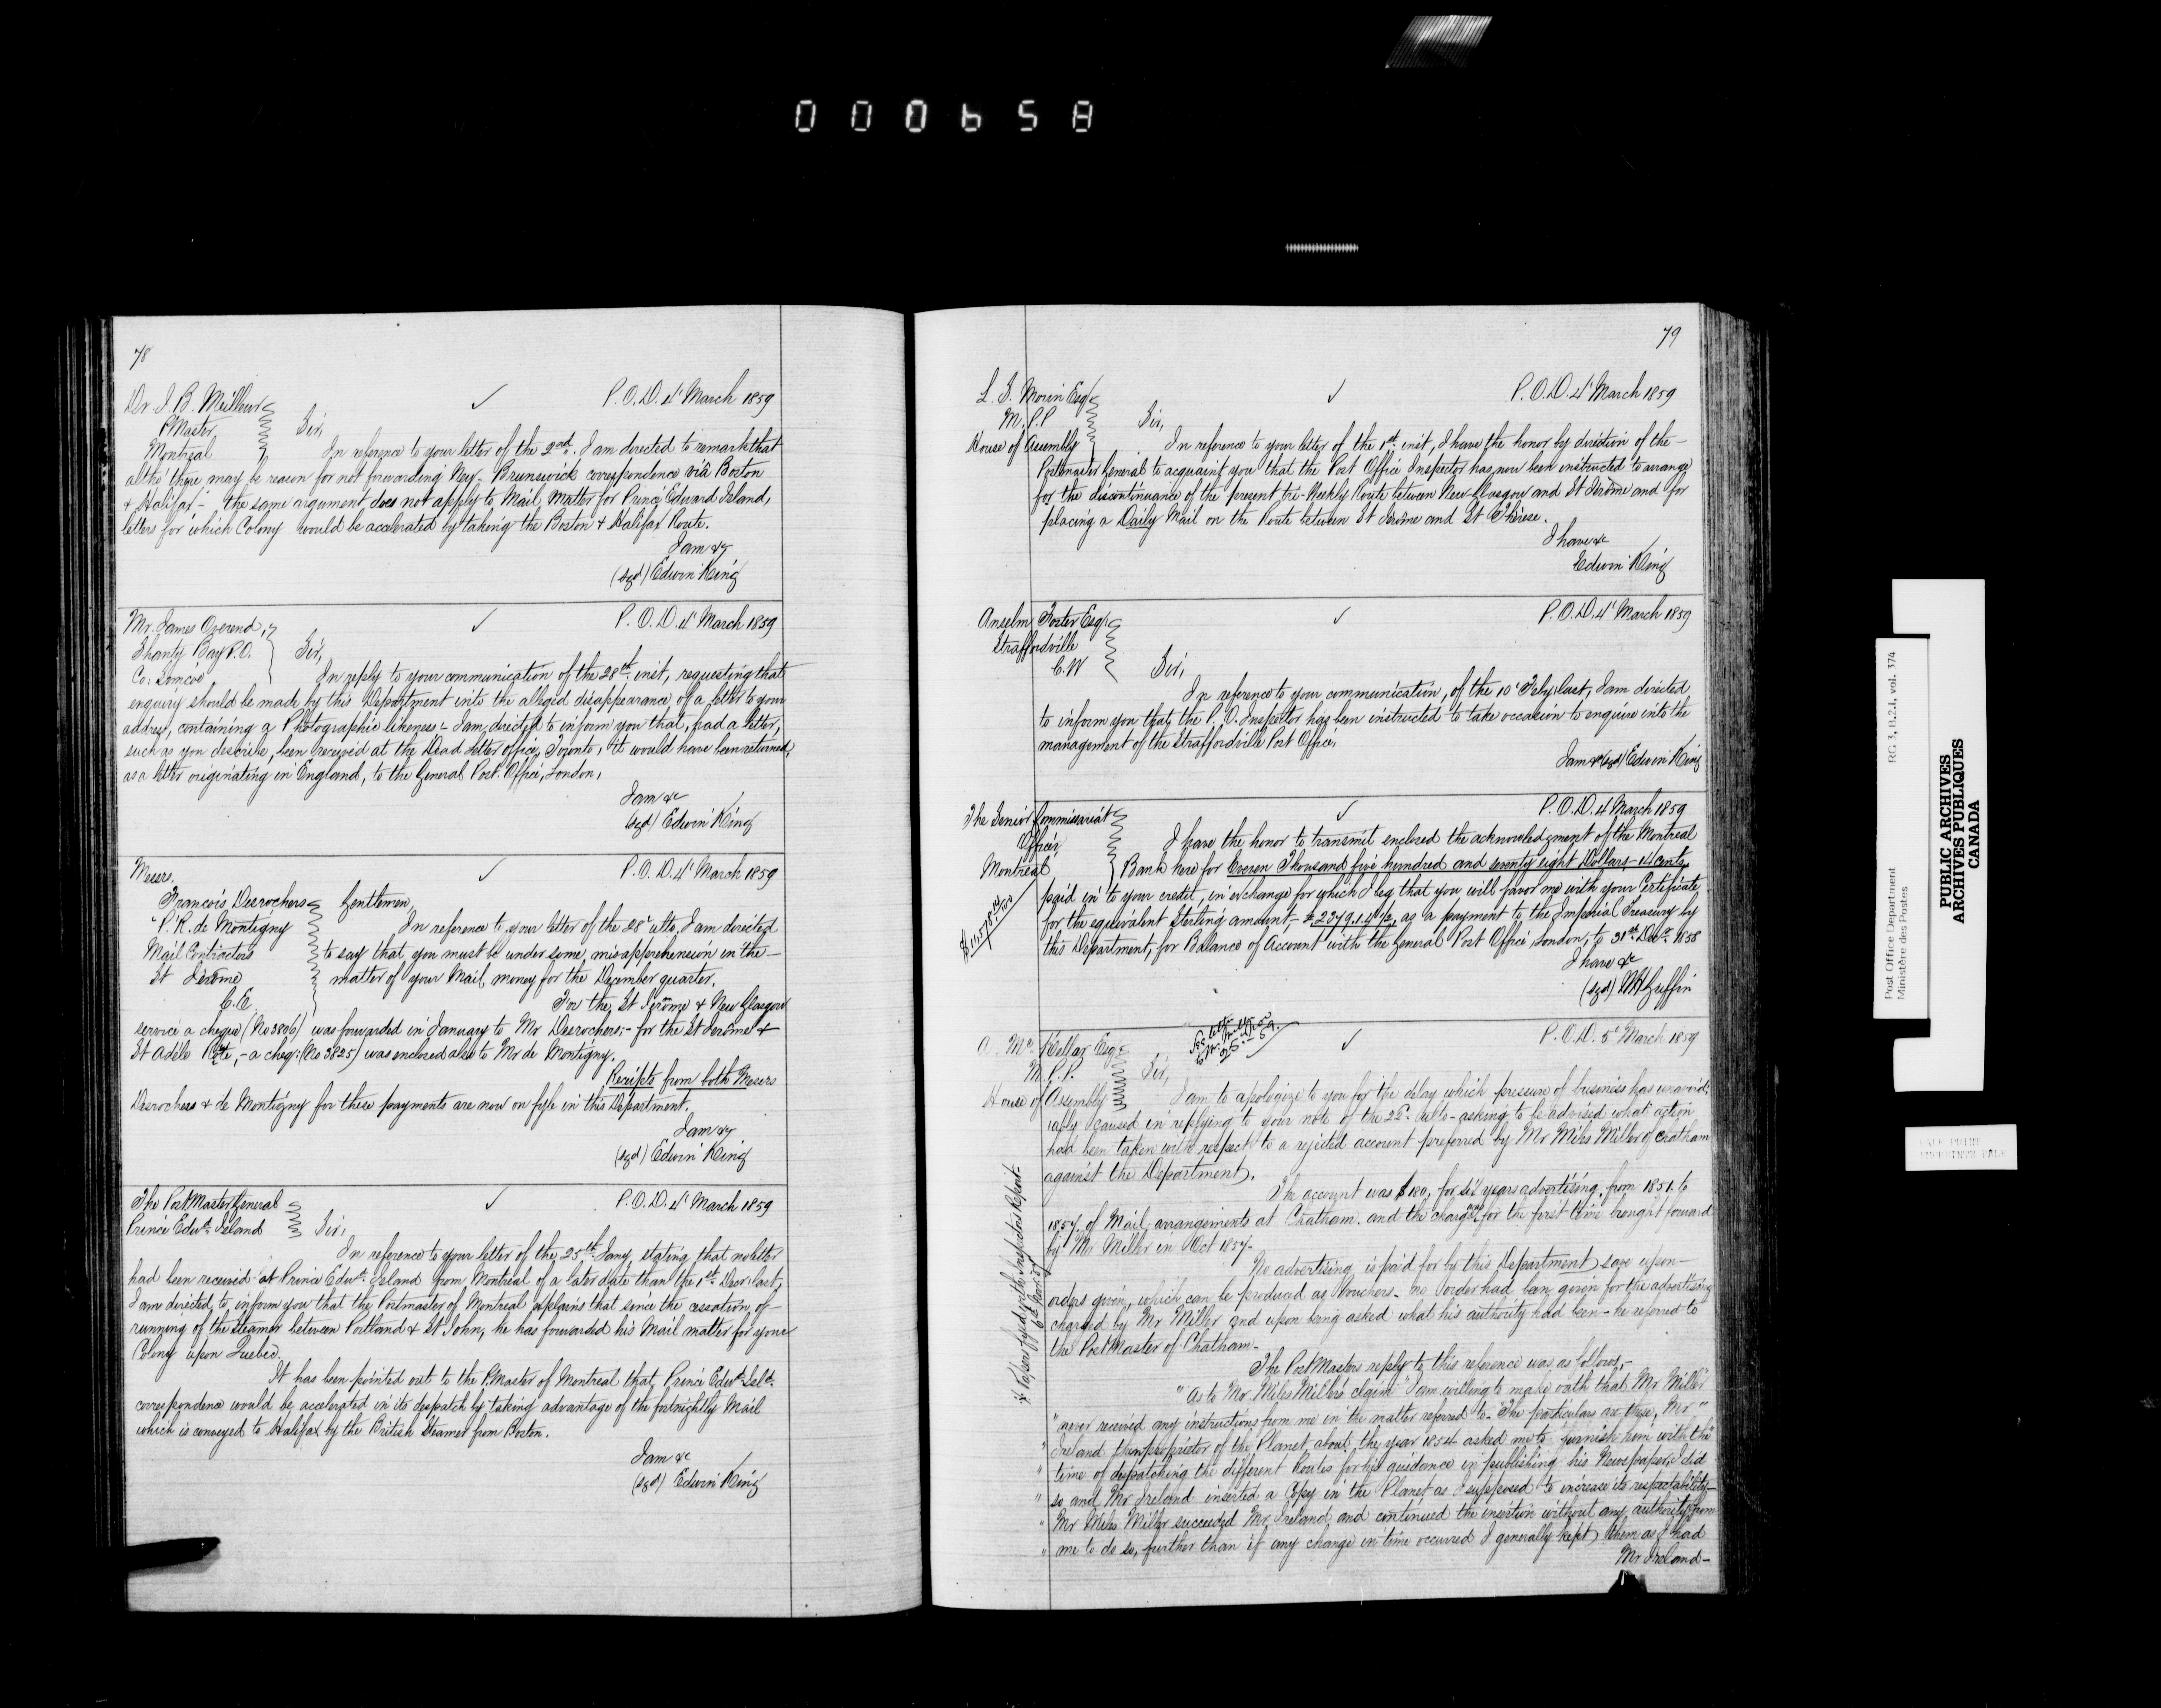 000658
78
Dr. J. B. Meilleur
P.Master
Montreal
P.O.D. 4' March 1859
Sir,
In reference to your letter of the 2nd. I am directed to remark that
altho' there may be reason for not forwarding New-Brunswick correspondence viâ Boston
& Halifax,- the same argument does not apply to Mail Matter for Prince Edward Island,
letters for which Colony would be accelerated by taking the Boston & Halifax Route.
I am &c
(sgd) Edwin King
Mr. James Overend,
Shanty Bay P.O.
Co: Simcoe
P.O.D. 4' March 1859
Sir,
In reply to your communication of the 28th inst, requesting that
enquiry should be made by this Department into the alleged disappearance of a letter to your
address, containing a Photographic likeness - I am directed to inform you that, had a letter,
such as you describe, been received at the Dead letter office, Toronto, it would have been returned,
as a letter originating in England, to the General Post Office, London.
I am &c
(sgd) Edwin King
Messrs.
Francois Desrochers
" P. R. de Montigny
Mail Contractors
St Jerôme
C.E.
P.O.D. 4' March 1859
Gentlemen,
In reference to your letter of the 28' ulto, I am directed
to say that you must be under some misapprehension in the-
matter of your Mail money for the December quarter.
For the St Jerôme & New Glasgow
service a cheque (No 3806) was forwarded in January to Mr Desrochers;- for the St Jerôme &
St Adèle Rte,- a cheq: (No 3825) was enclosed also to Mr de Montigny.
Receipts from both Messrs
Desrochers & de Montigny for these payments are now on fyle in this Department.
I am &c
(sgd) Edwin King
The PostMaster General
Prince Edwd. Island
P.O.D. 4' March 1859
Sir,
In reference to your letter of the 25th Jany, stating that no letter
had been received at Prince Edwd. Island from Montreal of a later date than the 1st Decr: last,
I am directed to inform you that the Postmaster of Montreal explains that since the cessation of-
running of the Steamer between Portland & St John, he has forwarded his Mail matter for your
Colony upon Quebec.
It has been pointed out to the P.Master of Montreal that, Prince Edwd. Isld.
correspondence would be accelerated in its despatch by taking advantage of the fortnightly Mail
which is conveyed to Halifax by the British Steamer from Boston.
I am &c
(sgd) Edwin King
79
L. S. Morin Esq
M.P.P
House of Assembly
P.O.D. 4' March 1859
Sir,
In reference to your letter of the 1st inst, I have the honor by direction of the-
Postmaster General to acquaint you that the Post Office Inspector has now been instructed to arrange
for the discontinuance of the present tri-Weekly Route between New-Glasgow and St Jerôme and for
placing a Daily Mail on the Route between St Jerôme and St Thérese.
I have &c
Edwin King
Anselm Foster Esq
Straffordville
C.W
P.O.D. 4' March 1859
Sir,
In reference to your communication, of the 10' Feby last, I am directed
to inform you that the P.O. Inspector has been instructed to take occasion to enquire into the
management of the Straffordville Post Office.
I am &c (sgd) Edwin King
The Senior Commissariat
Officer,
Montreal
P.O.D. 4 March 1859
I have the honor to transmit enclosed the acknowledgment of the Montreal
Bank here for Eleven Thousand five hundred and seventy eight Dollars-14 cents,
paid in to your credit, in exchange for which I beg that you will favor me with your Certificate
for the equivalent Sterling amount,- £2379.1.4½, as a payment to the Imperial Treasury by
this Department, for Balance of Account with the General Post Office London, to 31st Decr. 1858
$11,578 14/100
I have &c
(sgd) WHGriffin
A. Mc.Kellar Esq.
M.P.P.
House of Assembly
P.O.D. 5' March 1859
Sir,
I am to apologize to you for the delay which pressure of business has unavoid-
ably caused in replying to your note of the ulto- asking to be advised what action
had been taken with respect to a rejected account preferred by Mr Miles Miller of Chatham
against the Department.
The account was $180, for six years advertising, from 1851 to
1857, of Mail arrangements at Chatham. and the charge was for the first time brought forward
by Mr Miller in Oct 1857-
No advertising is paid for by this Department save upon-
orders given, which can be produced as Vouchers- no order had been given for the advertising
charged by Mr Miller and upon being asked what his authority had been- he referred to
the PostMaster of Chatham-
The PostMasters reply to this reference was as follows,-
"As to Mr Miles Miller's claim" I am willing to make oath that Mr Miller"
"never received any instructions from me in the matter referred to- The particulars are these, Mr"
"Ireland then proprietor of the Planet, about the year 1854 asked me to furnish him with the
"time of despatching the different Routes for his guidance in publishing his Newspaper, I did
"so and Mr Ireland inserted a Copy in the Planet as I supposed to increase its respectability-
"Mr Miles Miller succeeded Mr Ireland and continued the insertion without any authority from
"me to do so, further than if any change in time occurred I generally kept them as I had
Mr Ireland-
Papers fyled with Inspectors Report
Post Office Department
Ministère des Postes
RG 3, B.2.1, vol. 374
PUBLIC ARCHIVES
ARCHIVES PUBLIQUES
CANADA